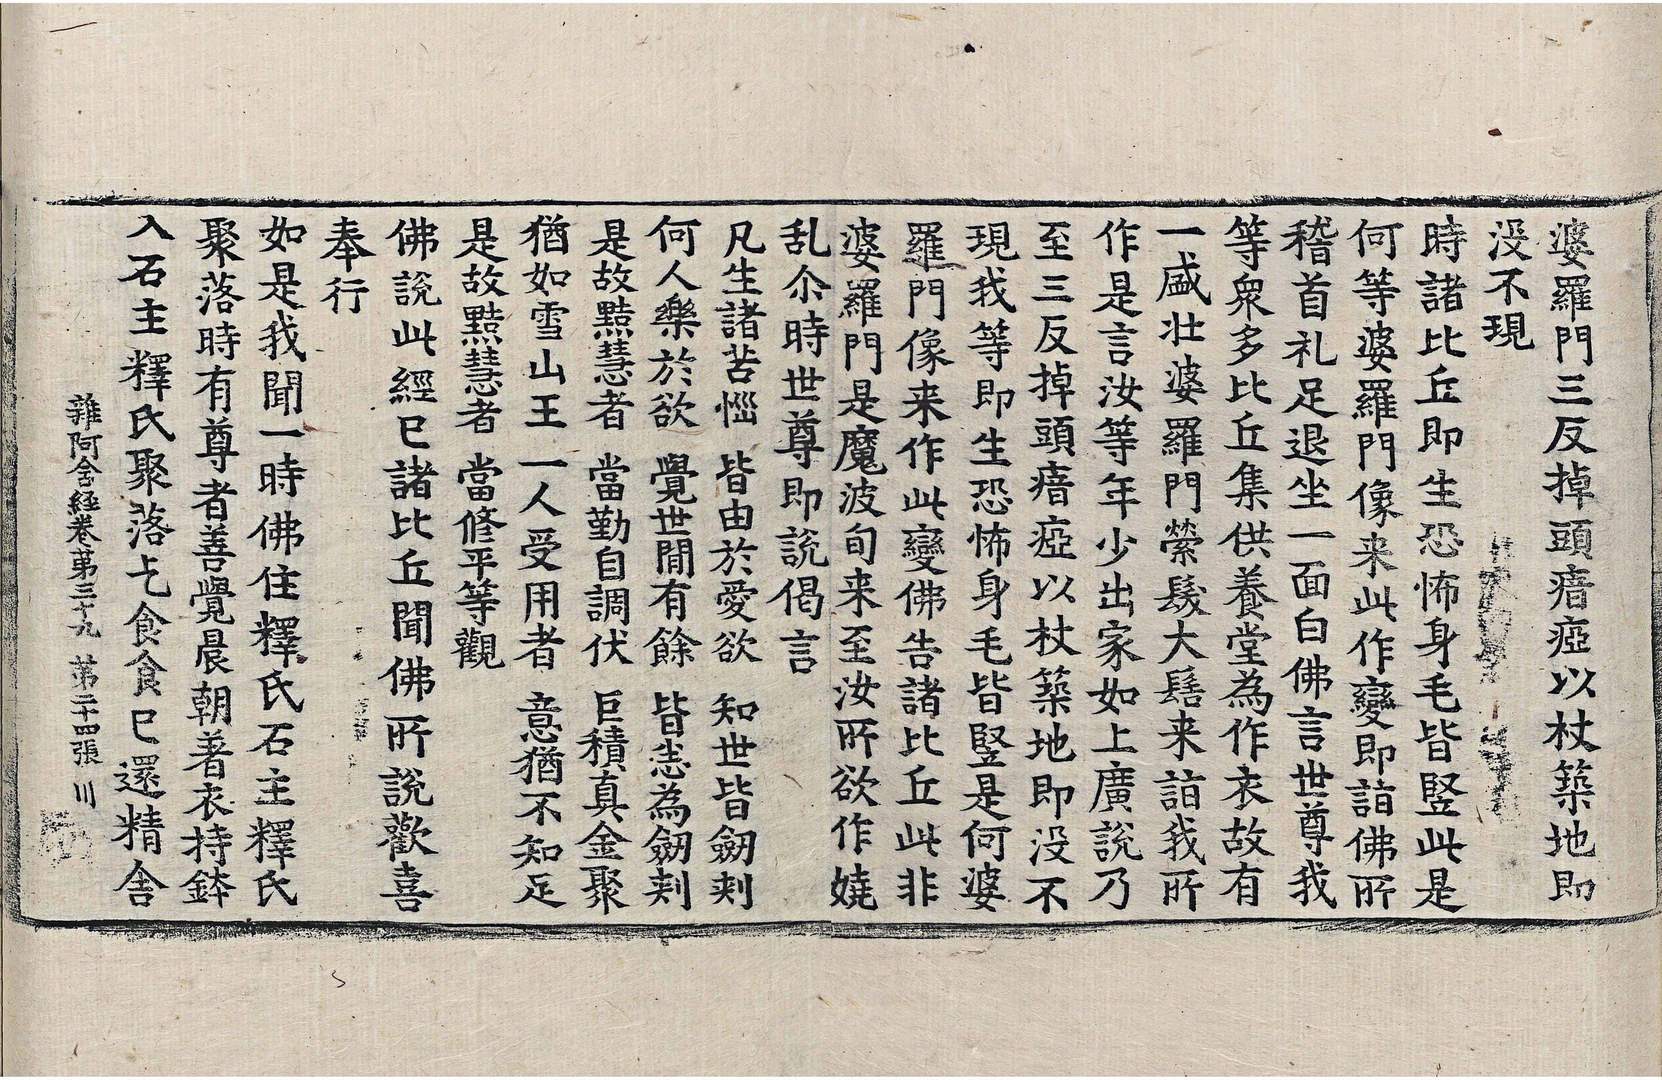 婆羅門三反掉頭瘖瘂以杖築地即
没不現
時諸比丘即生恐怖身毛皆竪此是
何等婆羅門像来此作變即詣佛所
稽首礼足退坐一面白佛言世尊我
等衆多比丘集供養堂為作衣故有
一盛壮婆羅門縈髮大髻来詣我所
作是言汝等年少出家如上廣說乃
至三反掉頭瘖瘂以杖築地即没不
現我等即生恐怖身毛皆竪是何婆
羅門像来作此變佛告諸比丘此非
婆羅門是魔波旬来至汝所欲作嬈
乱尒時世尊即說偈言
凡生諸苦惱 皆由於愛欲 知世皆劒刾
何人樂於欲 覺世間有餘 皆悉為劒刾
是故黠慧者 當勤自調伏 巨積真金聚
猶如雪山王 一人受用者 意猶不知足
是故黠慧者 當修平等觀
佛說此經已諸比丘聞佛所說歡喜
奉行
如是我聞一時佛住釋氏石主釋氏
聚落時有尊者善覺晨朝著衣持鉢
入石主釋氏聚落乞食食已還精舎
雜阿含経卷第三十九 第二十四張 川